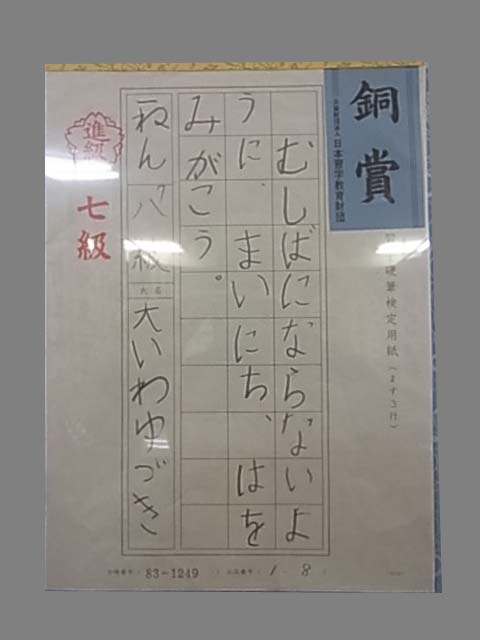 銅賞
公益財団法人 日本習字教育財団
硬筆検定用紙(ます3行)
むしばにならないよ
うに、まいにち、はを
みがこう。
ねん 八級 氏名 大いわゆづき
進級
七級
83-1249 1-8